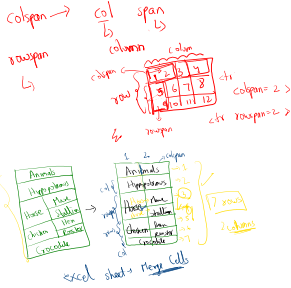 colspan → col span
column
rowspan
column
colspan
1 2 3 4
row
5 6 7 8
9 10 11 12
<tr colspan=2>
<tr rowspan=2>
rowspan
1 2 colspan
Animals
Hippopotamus
Horse Mare
Stallion
Chicken Hen
Rooster
Crocodile
Animals
Hippopotamus
Horse Mare
Stallion
Chicken Hen
Rooster
Crocodile
7 rows
2 columns
excel sheet → Merge Cells